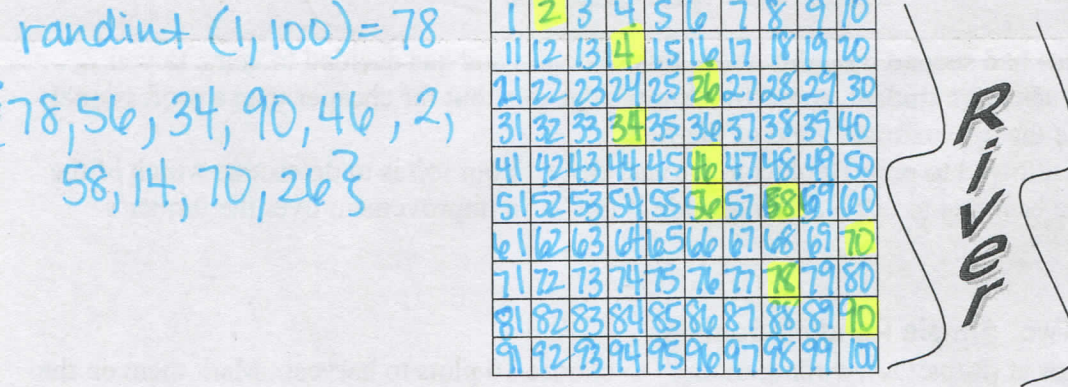 randint (1,100) = 78
{78, 56, 34, 90, 46, 2,
58, 14, 70, 26}
1 2 3 4 5 6 7 8 9 10
11 12 13 14 15 16 17 18 19 20
21 22 23 24 25 26 27 28 29 30
31 32 33 34 35 36 37 38 39 40
41 42 43 44 45 46 47 48 49 50
51 52 53 54 55 56 57 58 59 60
61 62 63 64 65 66 67 68 69 70
71 72 73 74 75 76 77 78 79 80
81 82 83 84 85 86 87 88 89 90
91 92 93 94 95 96 97 98 99 100
River